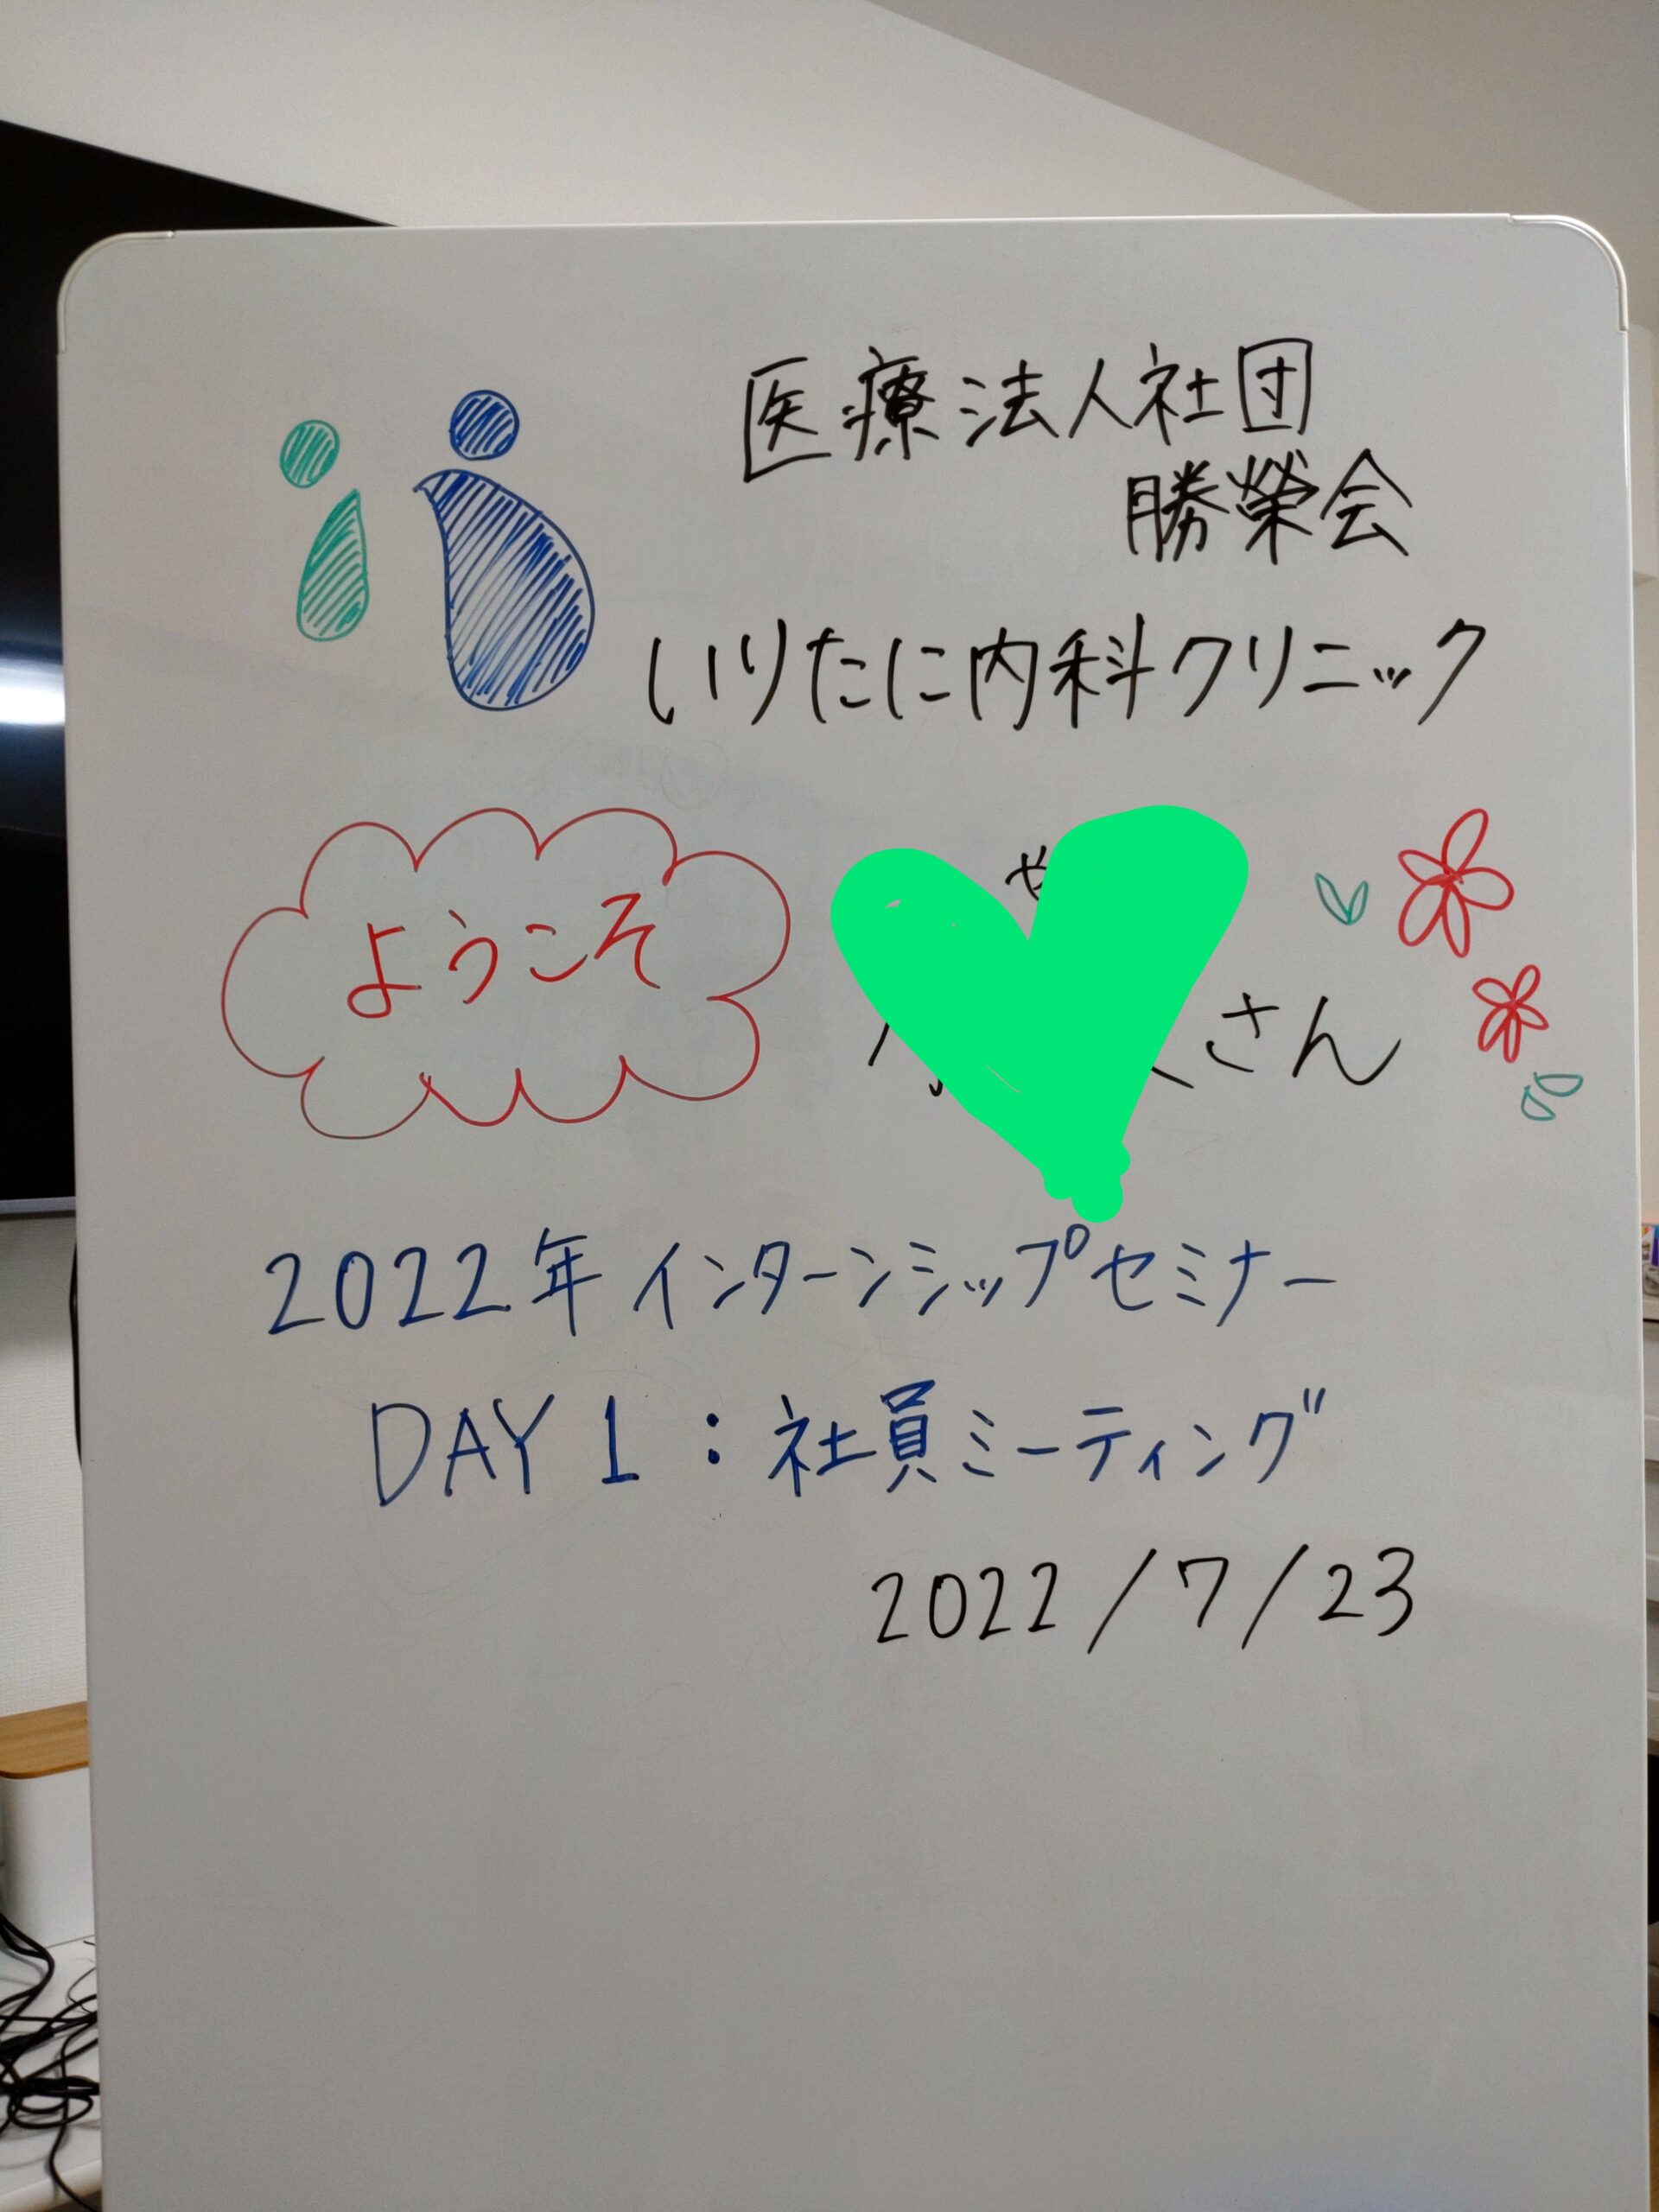 医療法人社団
勝榮会
いりたに内科クリニック
ようこそ
さん
2022年インターンシップセミナー
DAY1：社員ミーティング
2022/7/23